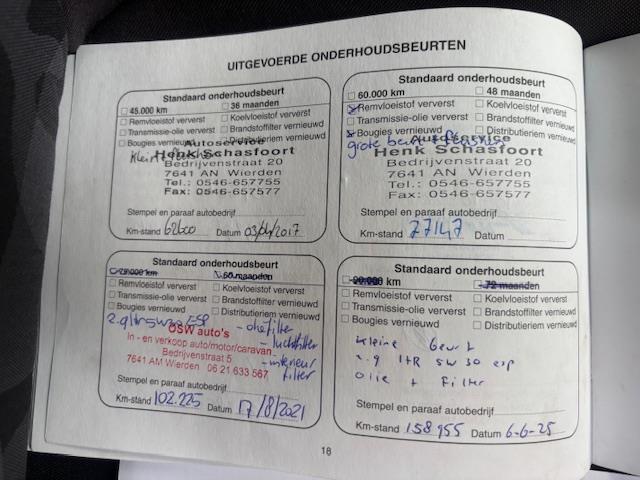 UITGEVOERDE ONDERHOUDSBEURTEN
Standaard onderhoudsbeurt
45.000 km 36 maanden
Remvloeistof ververst Koelvloeistof ververst
Transmissie-olie ververst Brandstoffilter vernieuwd
Bougies vernieuwd Distributieriem vernieuwd
Autoservice
Henk Schasfoort
Bedrijvenstraat 20
7641 AN Wierden
Tel.: 0546-657755
Fax: 0546-657577
Stempel en paraaf autobedrijf
Km-stand 62600 Datum 03/04/2017
Standaard onderhoudsbeurt
60.000 km 48 maanden
Remvloeistof ververst Koelvloeistof ververst
Transmissie-olie ververst Brandstoffilter vernieuwd
Bougies vernieuwd Distributieriem vernieuwd
grote beurt
Henk Schasfoort
Bedrijvenstraat 20
7641 AN Wierden
Tel.: 0546-657755
Fax: 0546-657577
Stempel en paraaf autobedrijf
Km-stand 77147 Datum
Standaard onderhoudsbeurt
75.000 km 60 maanden
Remvloeistof ververst Koelvloeistof ververst
Transmissie-olie ververst Brandstoffilter vernieuwd
Bougies vernieuwd Distributieriem vernieuwd
- oliefilter
OSW auto's
- luchtfilter
In - en verkoop auto/motor/caravan
Bedrijvenstraat 5
- interieur
7641 AM Wierden 06 21 633 567
filter
Stempel en paraaf autobedrijf
Km-stand 102.225 Datum 17/8/2021
Standaard onderhoudsbeurt
90.000 km 72 maanden
Remvloeistof ververst Koelvloeistof ververst
Transmissie-olie ververst Brandstoffilter vernieuwd
Bougies vernieuwd Distributieriem vernieuwd
kleine beurt
LTR 5W30 esp
olie + filter
Stempel en paraaf autobedrijf
Km-stand 158955 Datum 6-6-25
18